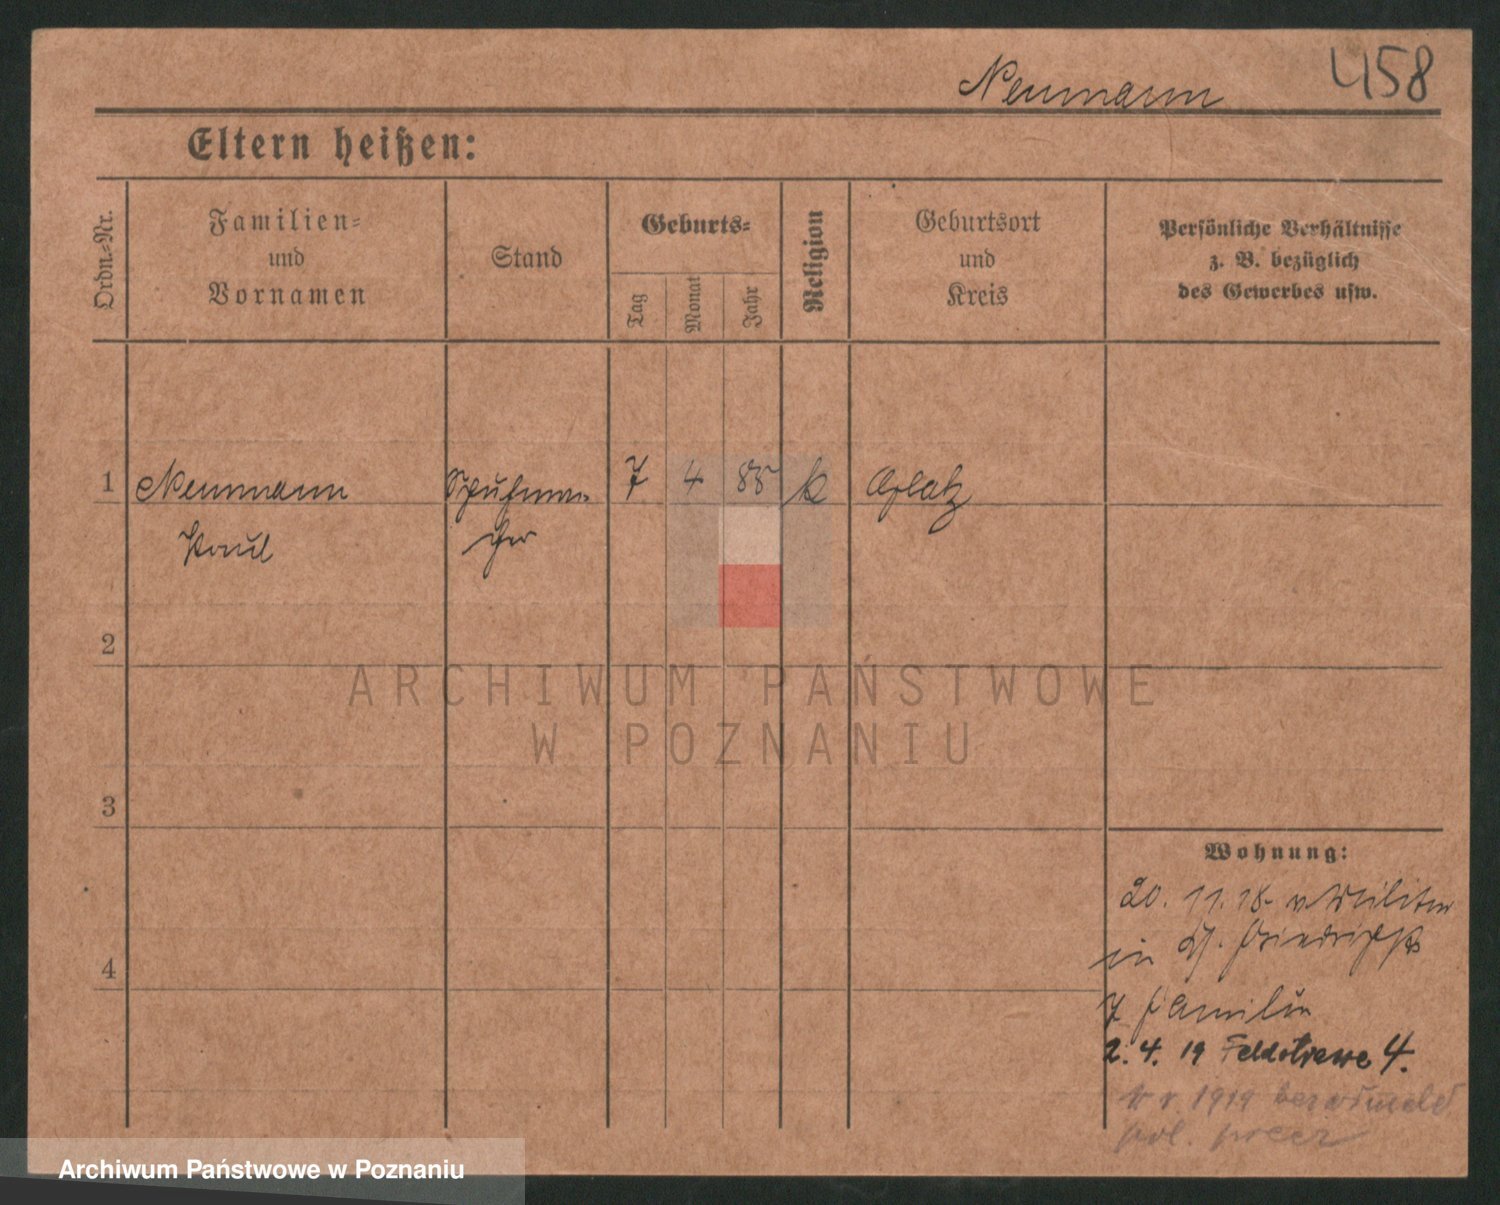 Neumann 458
Eltern heißen:
Ordn.-Nr.
Familien-
und
Vornamen
Stand
Geburts-
Tag
Monat
Jahr
Religion
Geburtsort
und
Kreis
Persönliche Verhältnisse
z. B. bezüglich
des Gewerbes usw.
1 Neumann 7 4 88 k
Paul
2
ARCHIWUM PAŃSTWOWE
W POZNANIU
3
Wohnung:
20. 11. 18. v. Militär
in
4
Familie
2. 4. 19 Feldstrasse 4.
1919
pol. przez
Archiwum Państwowe w Poznaniu